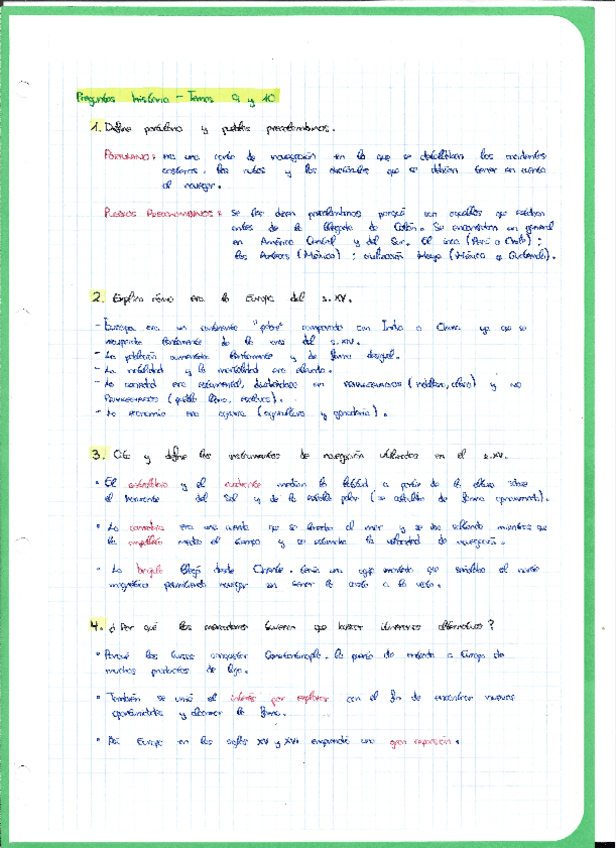 Preguntas historia - Temas 9 y 10
1. Define portulano y pueblos precolombinos.
PORTULANO: era una carta de navegación en la que se detallaban los accidentes
costeros, las rutas y los obstáculos que se debían tener en cuenta
al navegar.
PUEBLOS PRECOLOMBINOS: Se les dicen precolombinos porque son aquellos que estaban
antes de la llegada de Colón. Se encontraban en general
en América Central y del Sur. El inca (Perú a Chile);
los Aztecas (México); civilización Maya (México a Guatemala).
2. Explica cómo era la Europa del s. XV.
- Europa era un continente "pobre" comparado con India o China ya que se
recuperaba lentamente de la crisis del s. XIV.
- La población aumentaba lentamente y de forma desigual.
- La natalidad y la mortalidad era elevada.
- La sociedad era estamental, dividiéndose en PRIVILEGIADOS (nobleza, clero) y NO
PRIVILEGIADOS (pueblo llano, esclavos).
- La economía era agraria (agricultura y ganadería).
3. Cita y define los instrumentos de navegación utilizados en el s. XV.
• El astrolabio y el cuadrante medían la latitud a partir de la altura sobre
el horizonte del Sol y de la estrella polar (se calculaba de forma aproximada).
• La corredera era una cuerda que se lanzaba al mar y se iba soltando mientras que
la ampolleta medía el tiempo y se calculaba la velocidad de navegación.
• La brújula llegó desde Oriente. tenía una aguja imantada que señalaba el norte
magnético permitiendo navegar sin tener la costa a la vista.
4. ¿Por qué los mercaderes tuvieron que buscar itinerarios alternativos?
• Porque los turcos conquistan Constantinopla, la puerta de entrada a Europa de
muchos productos de lujo.
• También se unió el interés por explorar con el fin de encontrar nuevas
oportunidades y alcanzar la fama.
• Así Europa en los siglos XV y XVI emprendió una gran expansión.